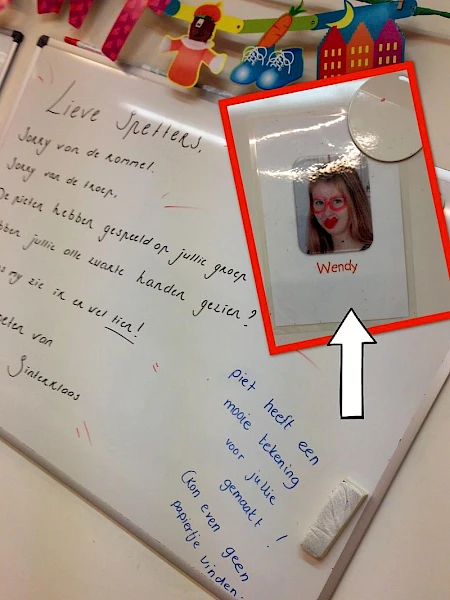 Lieve Spetters,
Sorry van de rommel.
Sorry van de troep.
De pieten hebben gespeeld op jullie groep
jullie alle zwarte handen gezien?
zie ik er wel tien!
van
Sinterklaas
Wendy
piet heeft een
mooie tekening
voor jullie
gemaakt!
(Kon even geen
papiertje vinden.